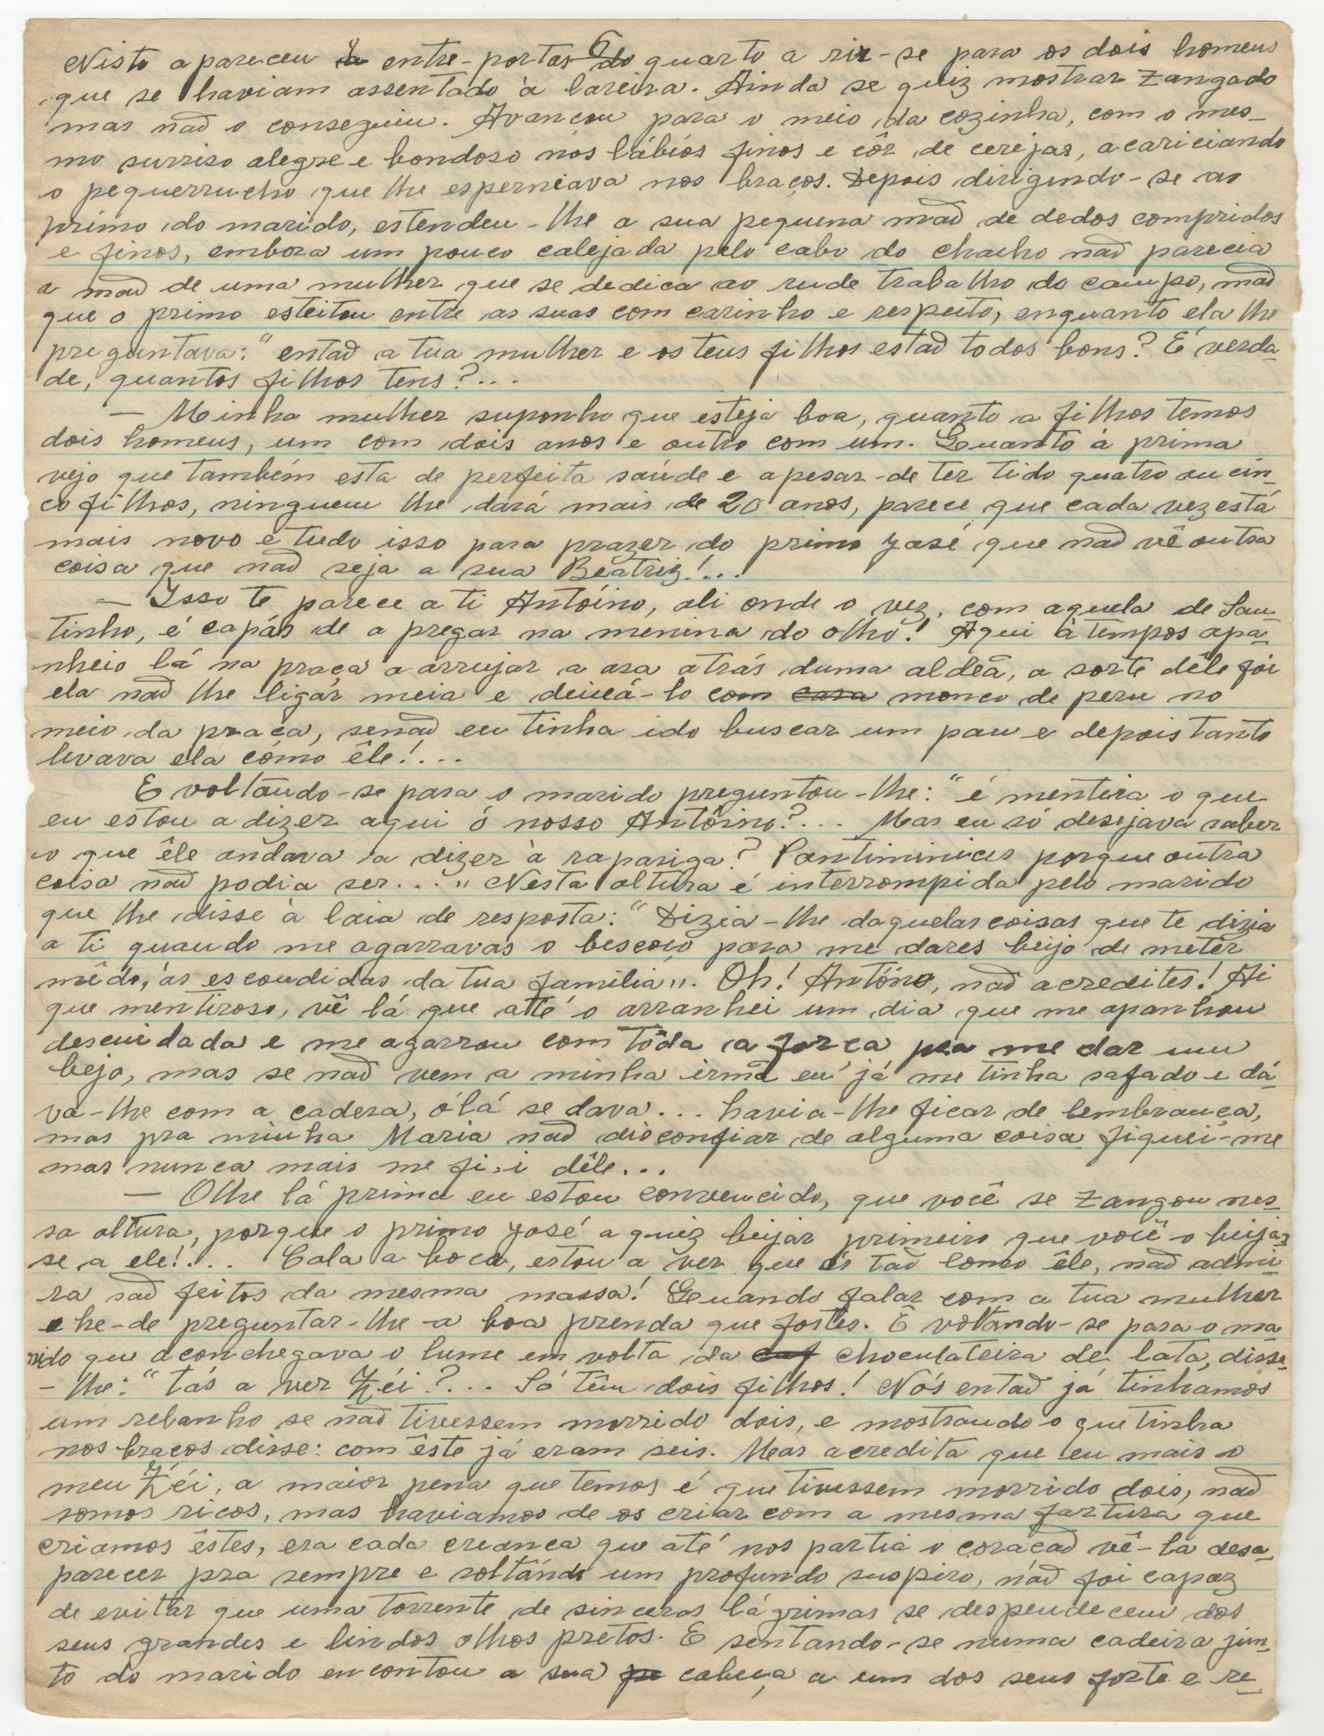 6
Nisto apareceu à entre-portas do quarto a rir-se para os dois homens
que se haviam assentado à lareira. Ainda se quiz mostrar zangado
mas naõ o conseguiu. Avançou para o meio da cozinha, com o mes-
mo surriso alegre e bondoso nos lábios finos e côr de cerejas, acariciando
o pequerrucho que lhe esperneava nos braços. Depois dirigindo-se ao
primo do marido, estendeu-lhe a sua pequena maõ de dedos compridos
e finos, embora um pouco calejada pelo cabo do chacho naõ parecia
a maõ de uma mulher que se dedica ao rude trabalho do campo, maõ
que o primo esteitou entre as suas com carinho e respeito, enquanto ela lhe
preguntava: "entaõ a tua mulher e os teus filhos estaõ todos bons? É verda-
de, quantos filhos tens?...
— Minha mulher suponho que esteja boa, quanto a filhos temos
dois homens, um com dois anos e outro com um. Quanto à prima
vejo que também esta de perfeita saúde e apesar-de ter tido quatro ou cin-
co filhos, ninguem lhe dará mais de 20 anos, parece que cada vez está
mais novo e tudo isso para prazer do primo José que naõ vê outra
coisa que naõ seja a sua Beatriz!...
— Isso te parece a ti Antóino, ali onde o vez, com aquela de San-
tinho, é capás de a pregar na menina do olho! Aqui à tempos apa-
nheio lá na praça a arrujar a asa atrás duma aldeã, a sorte dêle foi
ela naõ lhe ligár meia e deixá-lo com casa monco de peru no
meio da praça, senaõ eu tinha ido buscar um pau e depois tanto
levava ela cómo êle!...
E voltando-se para o marido preguntou-lhe: "é mentira o que
eu estou a dizer aqui ó nosso Antóino?... Mas eu só desejava saber
o que êle andava a dizer à rapariga? Pantiminices porque outra
coisa naõ podia ser..." Nesta altura é interrompida pelo marido
que lhe disse à laia de resposta: "Dizia-lhe daquelas coisas que te dizia
a ti quando me agarravas o bescoço para me dares beijo de meter
mêdo, às escondidas da tua familia". Oh! Antóino, naõ acredites! Ai
que mentiroso, vê lá que atté o arranhei um dia que me apanhou
descuidada e me agarrou com tôda a força pra me dar um
bejo, mas se naõ vem a minha irmã eu já me tinha safado e dá-
va-lhe com a cadera, ólá se dava... havia-lhe ficar de lembrança,
mas pra minha Maria naõ disconfiar de alguma coisa fiquei-me
mas nunca mais me fi.i dêle...
— Olhe lá prima eu estou convencido, que você se zangou nes-
sa altura, porque o primo José a quiz beijar primeiro que você o beijas-
se a ele!... Cala a boca, estou a ver que és taõ como êle, naõ admi-
ra saõ feitos da mesma massa! Quando falar com a tua mulher
e he-de preguntar-lhe a boa prenda que fostes. E voltando-se para o ma-
rido que aconchegava o lume em volta da caf choculateira de lata, disse-
-lhe: "tás a ver Zéi?... Só têm dois filhos! Nós entaõ já tinhamos
um rebanho se naõ tivessem morrido dois, e mostrando o que tinha
nos braços disse: com êste já eram seis. Mas acredita que eu mais o
meu Zéi, a maior pena que temos é que tivessem morrido dois, naõ
somos ricos, mas haviamos de os criar com a mesma fartura que
criamos êstes, era cada creança que até nos partia o coraçaõ vê-la desa-
parecer pra sempre e soltando um profundo suspiro, naõ foi capaz
de evitar que uma torrente de sinceras lágrimas se despendecem dos
seus grandes e lindos olhos pretos. E sentando-se numa cadeira jun-
to do marido encontou a sua pe cabeça a um dos seus forte e re-